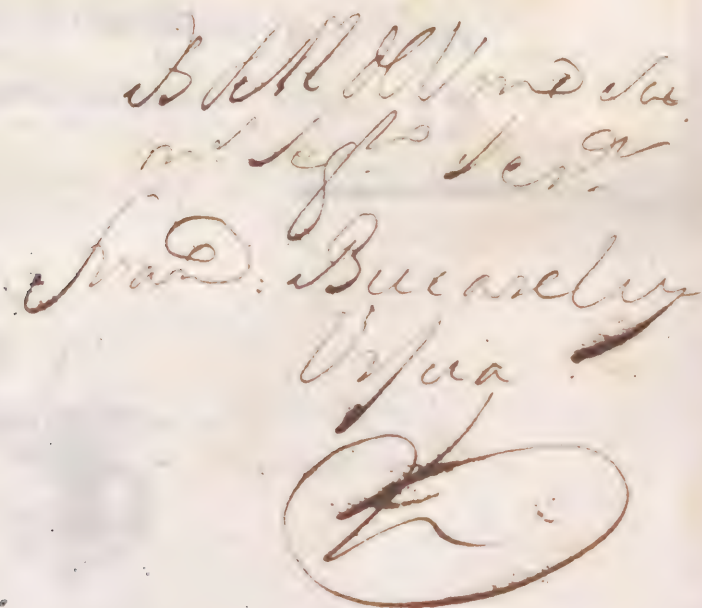 B L M de Vmd su
mr segro seror
Juan Bucareli y
Ursua